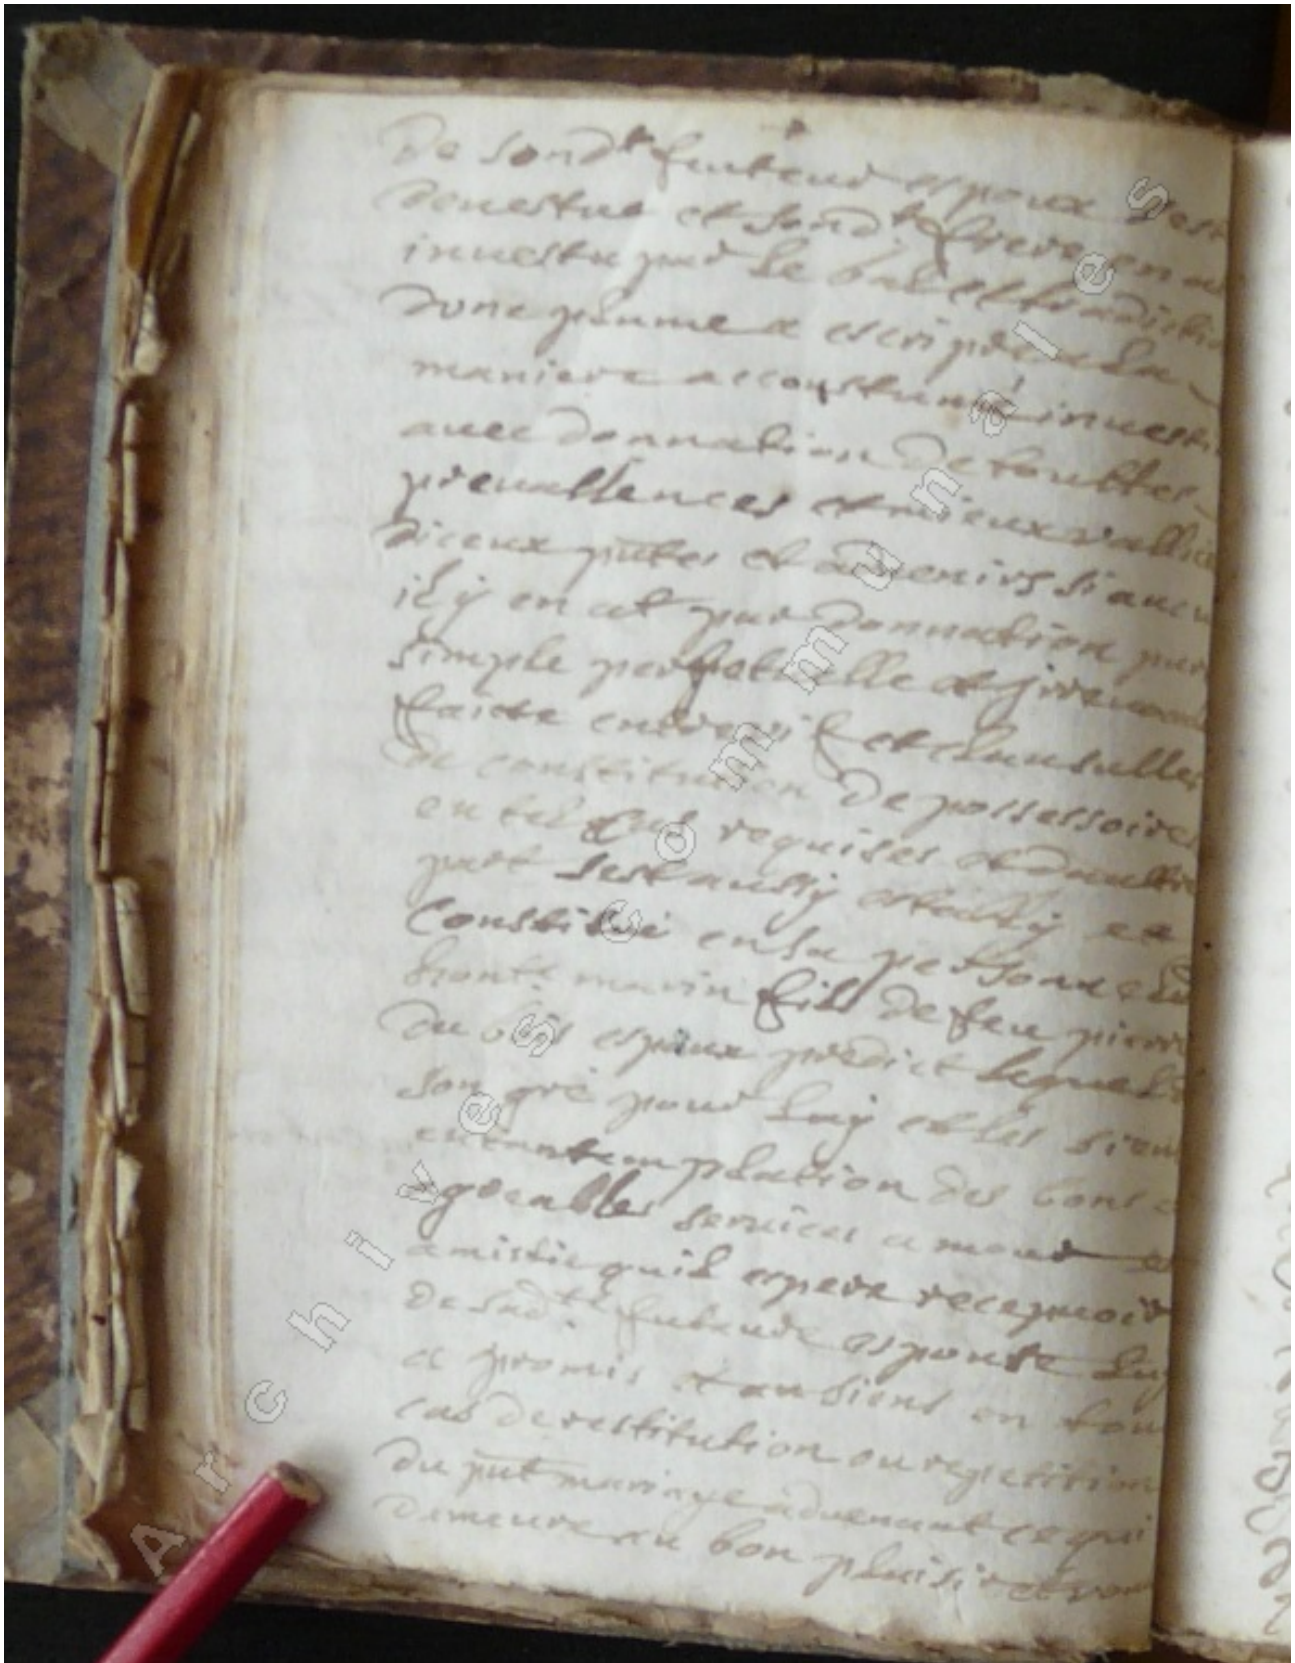 De sond.t futeur espoux s'est
devestue et sond.t frere en a
investu par le bail et tradition
d'une plume a escripre a la
maniere accoustumé investi
avec donnation de touttes
prevallences et mieux vallue
diceux pntes et advenirs si aucu
il y en at par donnation pure
simple perpetuelle et irrevoca
faicte entre vif et clausulles
de constitution de possessoires
en tel cas requises et daultre
part sest aussy estably et
Constitué en sa personne led
hon.te marin fils de feu pierre
du bois espoux predict lequel
son gré pour luy et les siens
en contemplation des bons e
agreables services amour et
amistie quil espere recepvoir
de sad.te future espouse luy
a promis et au siens en tou
cas de restitution ou repetition
du pnt mariage advenant ce qui
demeure au bon plaisir et vou
Archives communales